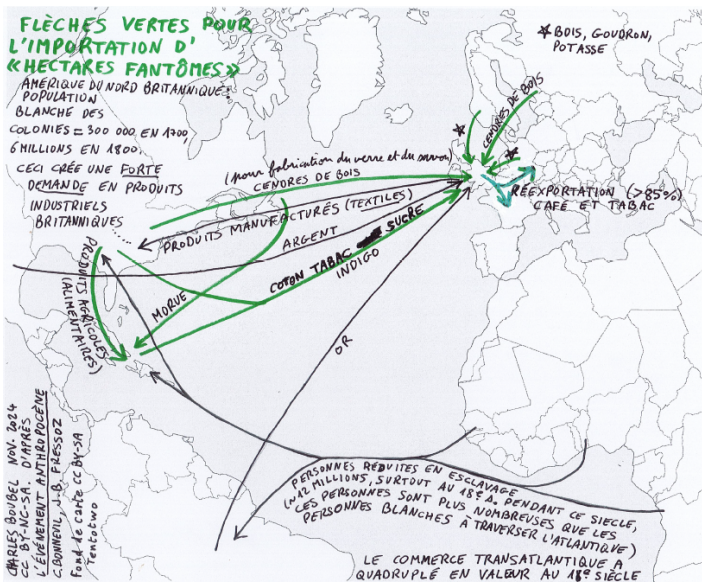 FLÈCHES VERTES POUR
L'IMPORTATION D'
«HECTARES FANTÔMES»
AMÉRIQUE DU NORD BRITANNIQUE:
POPULATION
BLANCHE DES
COLONIES = 300 000 EN 1700,
6 MILLIONS EN 1800.
CECI CRÉE UNE FORTE
DEMANDE EN PRODUITS
INDUSTRIELS
BRITANNIQUES
* BOIS, GOUDRON,
POTASSE
*
CENDRES DE BOIS
*
(pour fabrication du verre et du savon)
CENDRES DE BOIS
RÉEXPORTATION (>85%)
CAFÉ ET TABAC
PRODUITS MANUFACTURÉS (TEXTILES)
ARGENT
COTON TABAC SUCRE
INDIGO
PRODUITS AGRICOLES
(ALIMENTAIRES)
MORUE
OR
PERSONNES RÉDUITES EN ESCLAVAGE
(~12 MILLIONS, SURTOUT AU 18e s. PENDANT CE SIECLE,
LES PERSONNES SONT PLUS NOMBREUSES QUE LES
PERSONNES BLANCHES À TRAVERSER L'ATLANTIQUE)
LE COMMERCE TRANSATLANTIQUE A
QUADRUPLÉ EN VALEUR AU 18e SIÈCLE
CHARLES BOUBEL NOV. 2024
CC BY-NC-SA D'APRÈS
L'ÉVÉNEMENT ANTHROPOCÈNE
C. BONNEUIL, J.B. FRESSOZ
Fond de carte CC BY-SA
Tentotwo